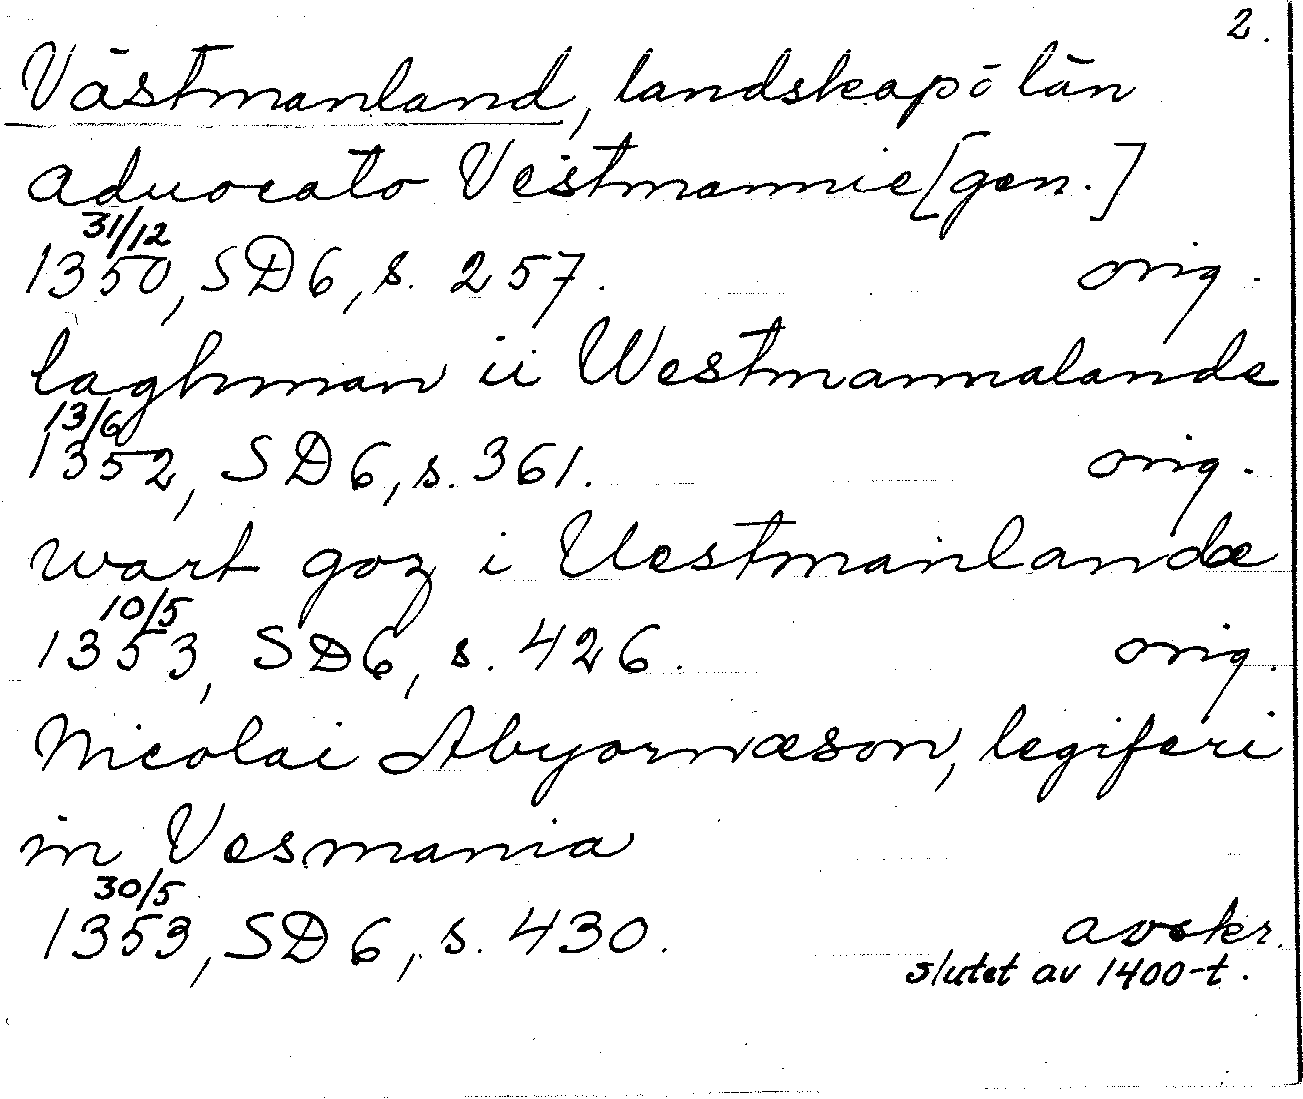 2.
Västmanland, landskap ō län
aduocato Vestmannie [gen.]
31/12
1350, SD6, s. 257. orig.
laghman ii Westmannalande
13/6
1352, SD6, s. 361. orig.
wart goz i Uestmanlandæ
10/5
1353, SD6, s. 426. orig.
Nicolai Abyornæson, legiferi
in Vesmania
30/5
1353, SD6, s. 430. avskr.
slutet av 1400-t.